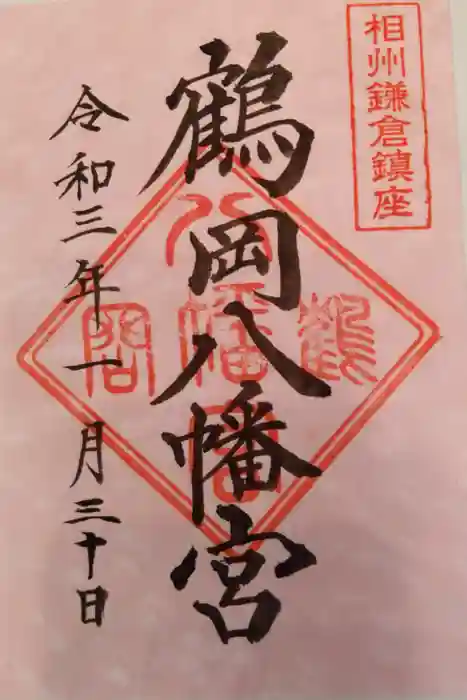 相州鎌倉鎮座
鶴岡八幡宮
令和三年一月三十日